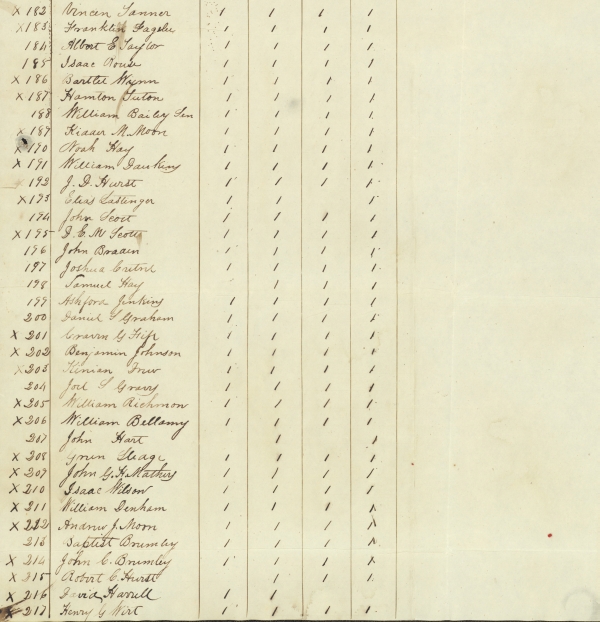 x 182 Vincen Tanner 1 1 1 1
x 183 Franklin 1 1 1 1
184 Albert E Taylor 1 1 1 1
185 Isaac Rouse 1 1 1 1
x 186 Bartlet Wynn 1 1 1 1
x 187 Hamton Tuton 1 1 1 1
188 William Bailey Sen 1 1 1 1
x 189 Kidder M. Moon 1 1 1 1
x 190 Noah Hay 1 1 1 1
x 191 William Dawkins 1 1 1 1
192 J. D. Hurst 1 1 1 1
x 193 Elias Lastinger 1 1 1
194 John Scott 1 1 1 1
x 195 D. E. M Scott 1 1 1 1
196 John Braden 1 1 1 1
197 Joshua 1 1 1 1
198 Samuel Hay 1 1 1
199 Ashford Jinkins 1 1 1 1
200 Daniel S Graham 1 1 1 1
x 201 G 1 1 1 1
x 202 Benjamin Johnson 1 1 1 1
x 203 1 1 1 1
204 Joel S Graves 1 1 1 1
x 205 William Richmon 1 1 1 1
x 206 William Bellamy 1 1 1 1
207 John Hart 1 1
x 208 Green Sledge 1 1 1 1
x 209 John G. H. Mathers 1 1 1 1
x 210 Isaac Wilson 1 1 1 1
x 211 William Denham 1 1 1 1
x 212 Andrew J. Moon 1 1 1 1
213 Baptist Brumley 1 1 1 1
x 214 John C. Brumley 1 1 1 1
x 215 Robert C. Hurst 1 1 1
x 216 David Harrell 1 1
x 217 Henry G Wirt 1 1 1 1